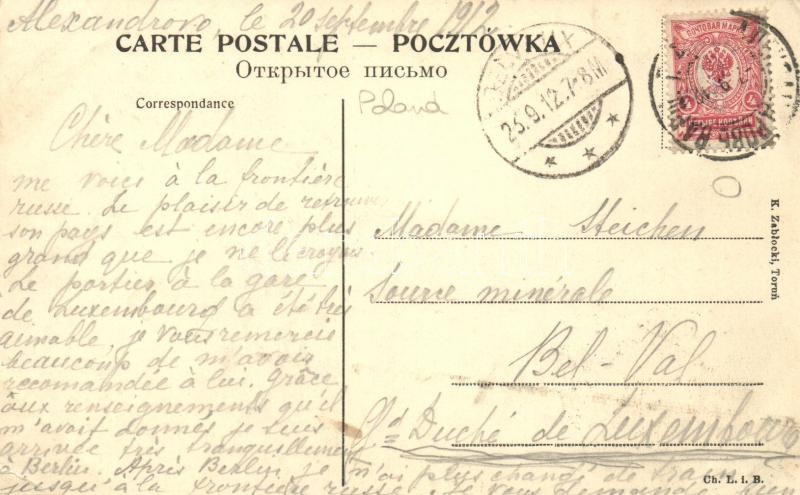 Alexandrovo, le 20 septembre 1912
CARTE POSTALE — POCZTÓWKA
Открытое письмо
Correspondance
Poland
23.9.12.7-8N
ПОЧТОВАЯ МАРКА
4
ЧЕТЫРЕ КОПѢЙКИ
Chère Madame
me voici à la frontière
russe. Le plaisir de retrouver
son pays est encore plus
grand que je ne le croyais
Le portier à la gare
de Luxembourg a été très
aimable, je vous remercie
beaucoup de m'avoir
recomandée à lui. Grâce
aux renseignements qu'il
m'avait donnés je suis
arrivée très tranquillement
à Berlin. Après Berlin je n'ai plus changé de train
jusqu'à la frontière russe. Je vous demande bien
Madame Steichen
Source minérale
Bel-Val
Gd Duché de Luxembourg
K. Zabłocki, Toruń
Ch. L. i. B.